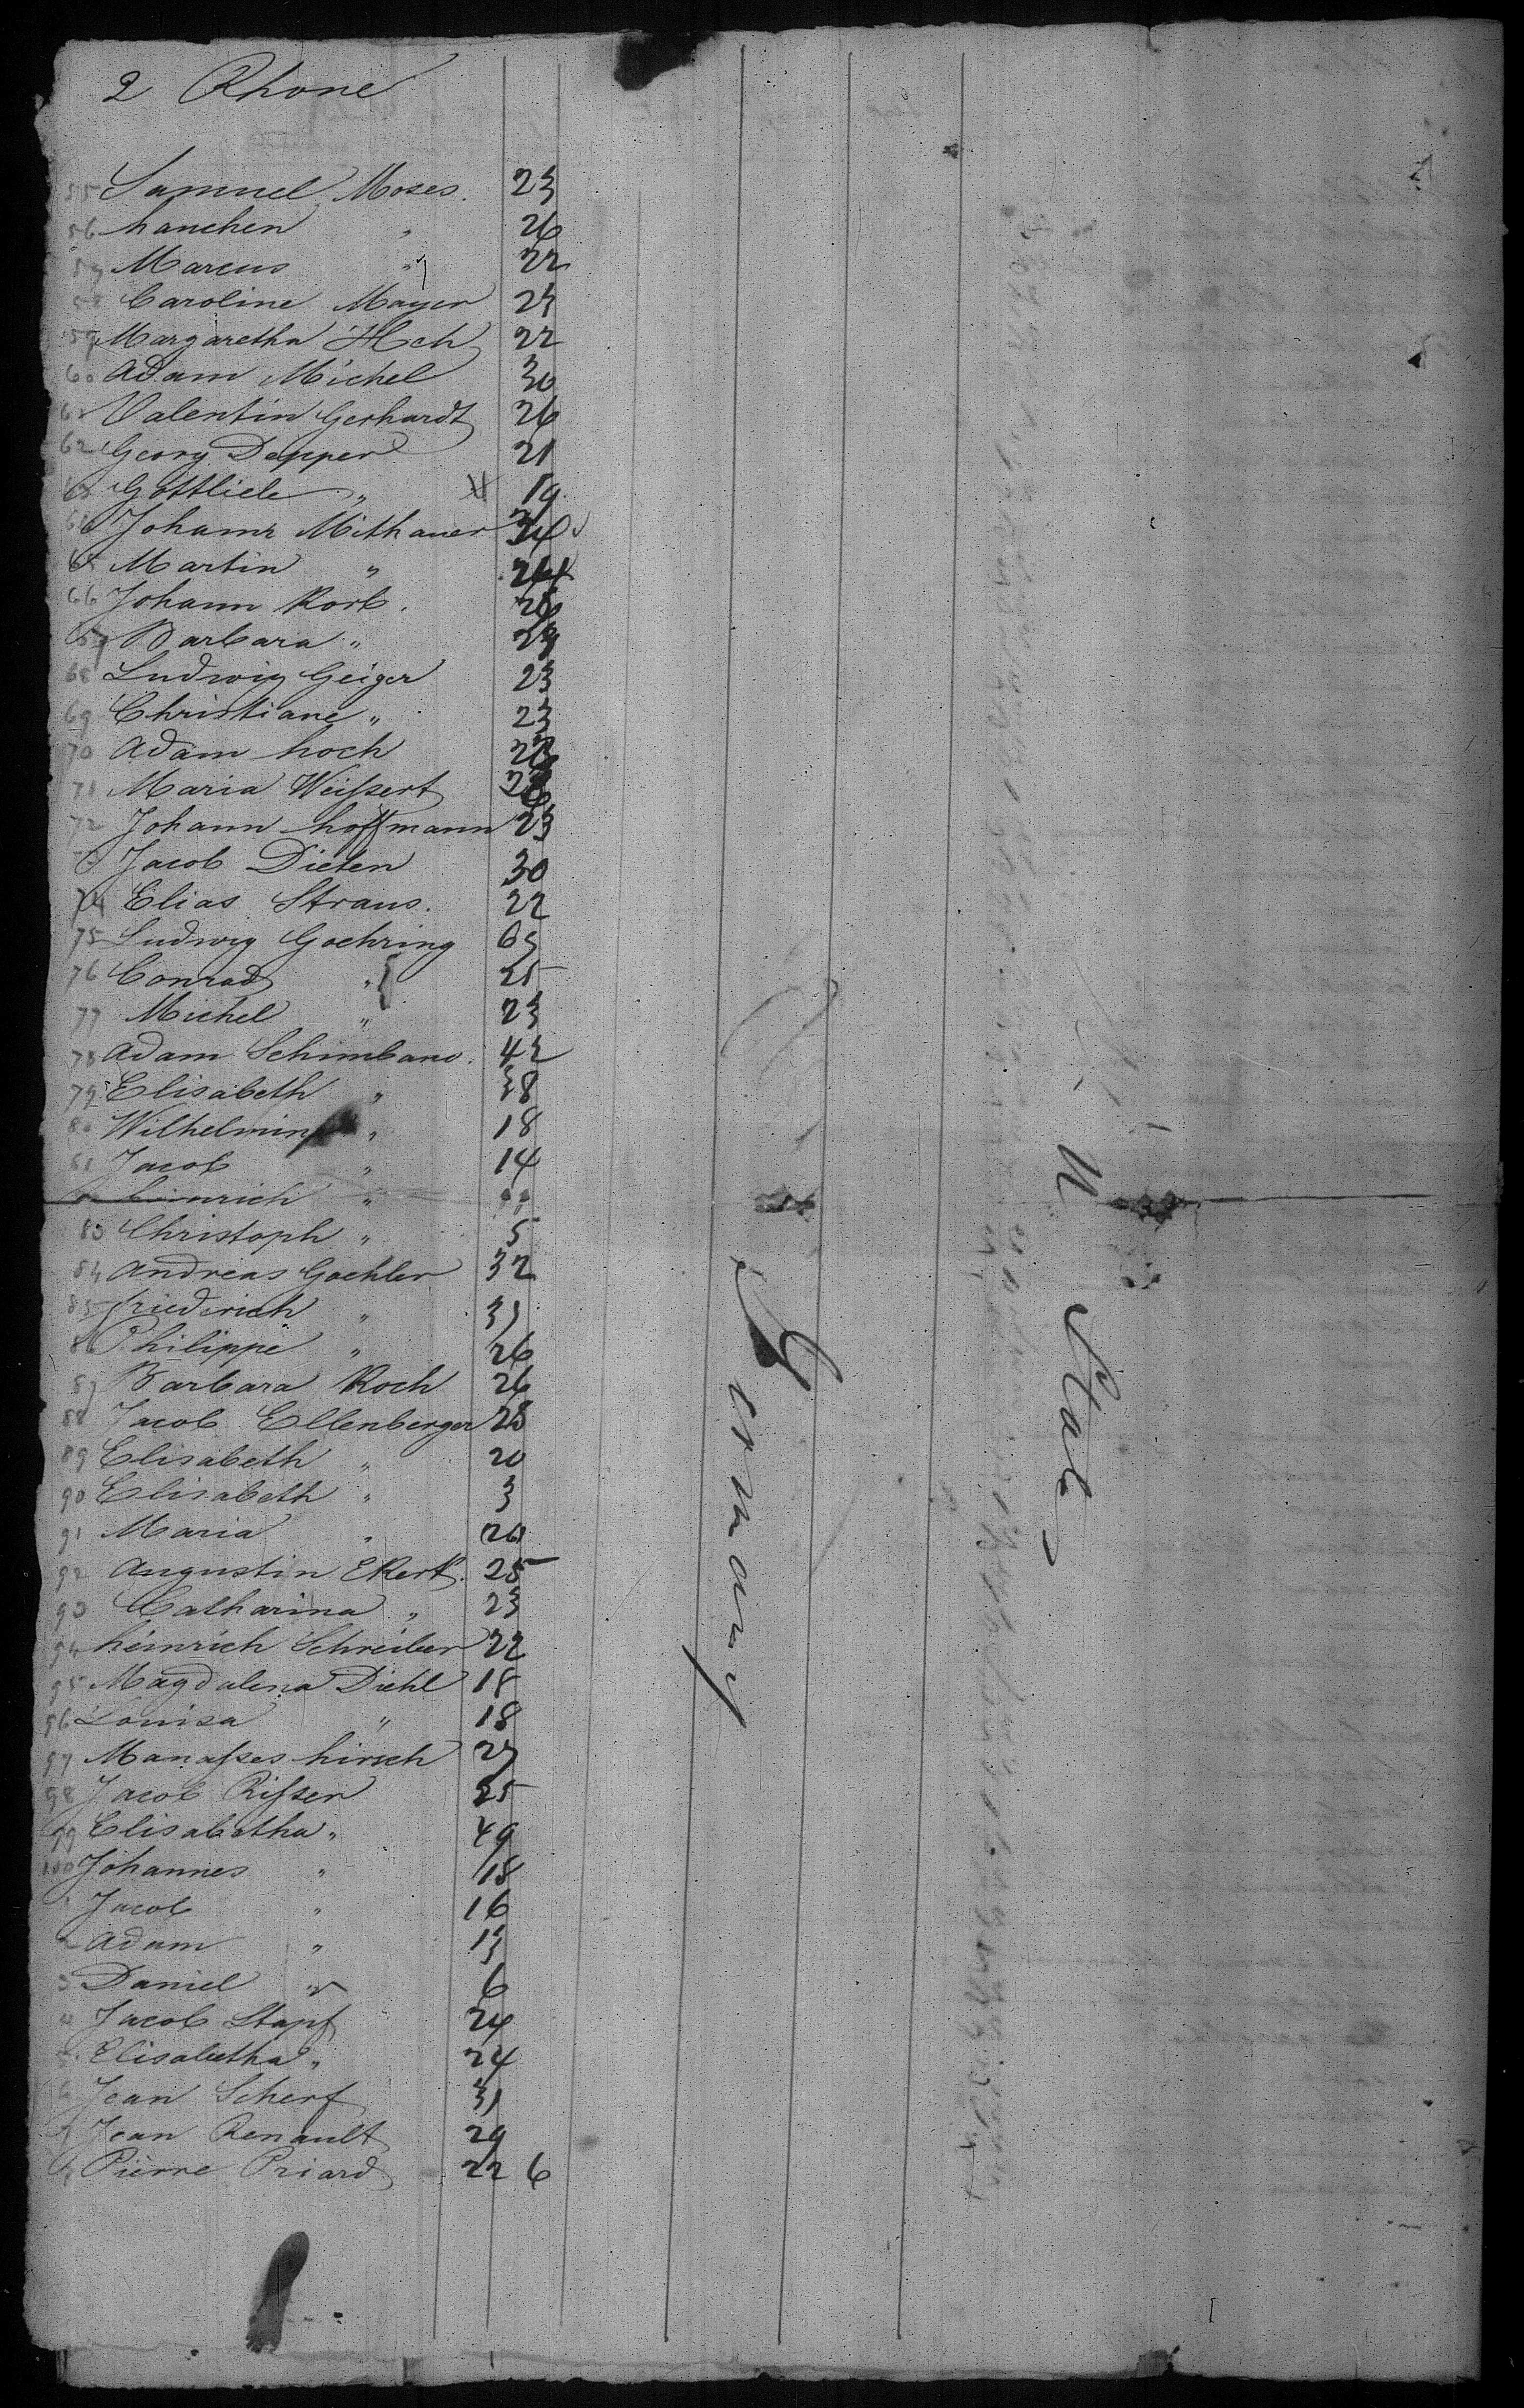 2 Rhone
55 Samuel Moses. 23
56 hanchen " 26
57 Marcus " 22
58 Caroline Mayer 24
59 Margaretha 22
60 Adam Michel 30
61 Valentin Gerhardt 26
62 Georg Depper 21
63 Gottlieb " 19
64 Johann Mithauer 34
65 Martin " 24
66 Johann Korb. 26
67 Barbara " 29
68 Ludwig Geiger 23
69 Christiane " 23
70 Adam hoch
71 Maria Weißert
72 Johann hoffmann 23
Jacob Dieten 30
74 Elias Straus. 22
75 Ludwig Goehring 65
76 Conrad " 25
77 Michel " 23
78 Adam Schimbano. 42
79 Elisabeth " 38
80 Wilhelmina " 18
81 Jacob " 14
heinrich "
83 Christoph " 5
84 Andreas Goehler 32
85 friedrich " 31
86 Philippe " 26
87 Barbara Koch 26
88 Jacob Ellenberger 28
89 Elisabeth " 20
90 Elisabeth " 3
91 Maria " 20
92 Augustin Ekert. 25
93 Catharina " 23
94 heinrich Schreiber 22
95 Magdalena Diehl 18
96 Louisa " 18
97 Manaßes hirsch 27
98 Jacob Rißer 25
99 Elisabetha " 49
100 Johannes " 18
1 Jacob " 16
2 Adam " 13
3 Daniel " 6
4 Jacob Stapf 24
5 Elisabetha " 24
6 Jean Scherf 31
7 Jean Renault 29
Pierre Priard 22 6
Germany
U Stat